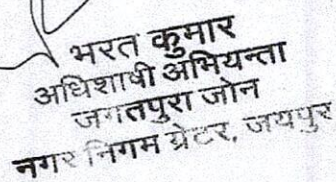 भरत कुमार
अधिशाषी अभियन्ता
जगतपुरा जोन
नगर निगम ग्रेटर, जयपुर